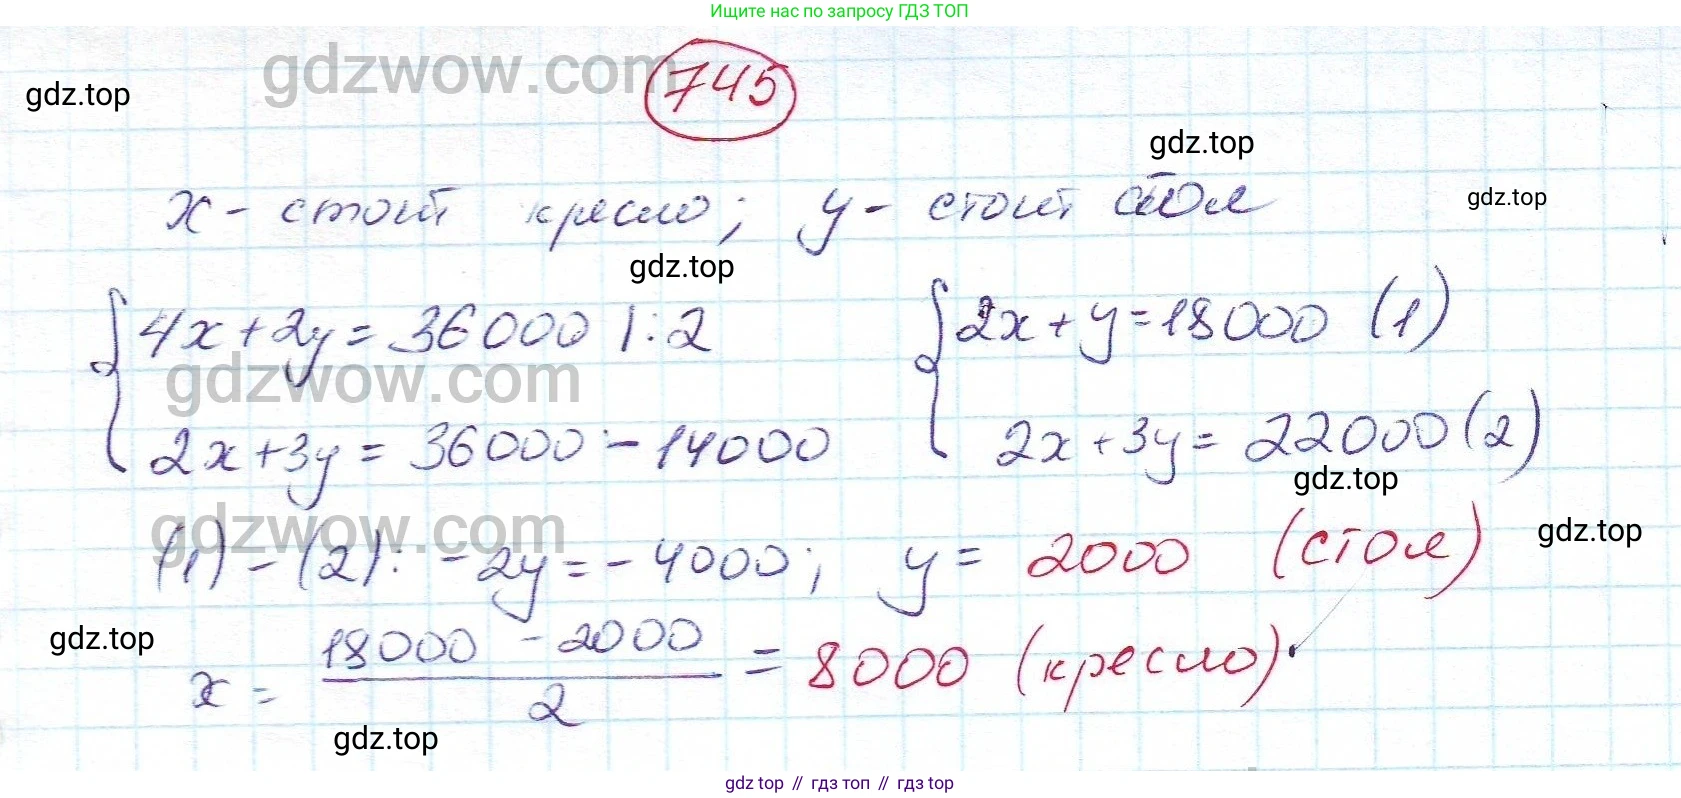 Ищите нас по запросу ГДЗ ТОП
gdzwow.com
745
gdz.top
gdz.top
x - стоит кресло; y - стоит стол
gdz.top
gdz.top
{ 4x + 2y = 36000 | : 2
{ 2x + y = 18000 (1)
gdzwow.com
2x + 3y = 36000 - 14000
2x + 3y = 22000 (2)
gdz.top
gdzwow.com
(1) - (2): -2y = -4000; y = 2000 (стол)
gdz.top
gdz.top
x = (18000 - 2000) / 2 = 8000 (кресло).
gdz.top
gdz top // гдз топ // гдз top